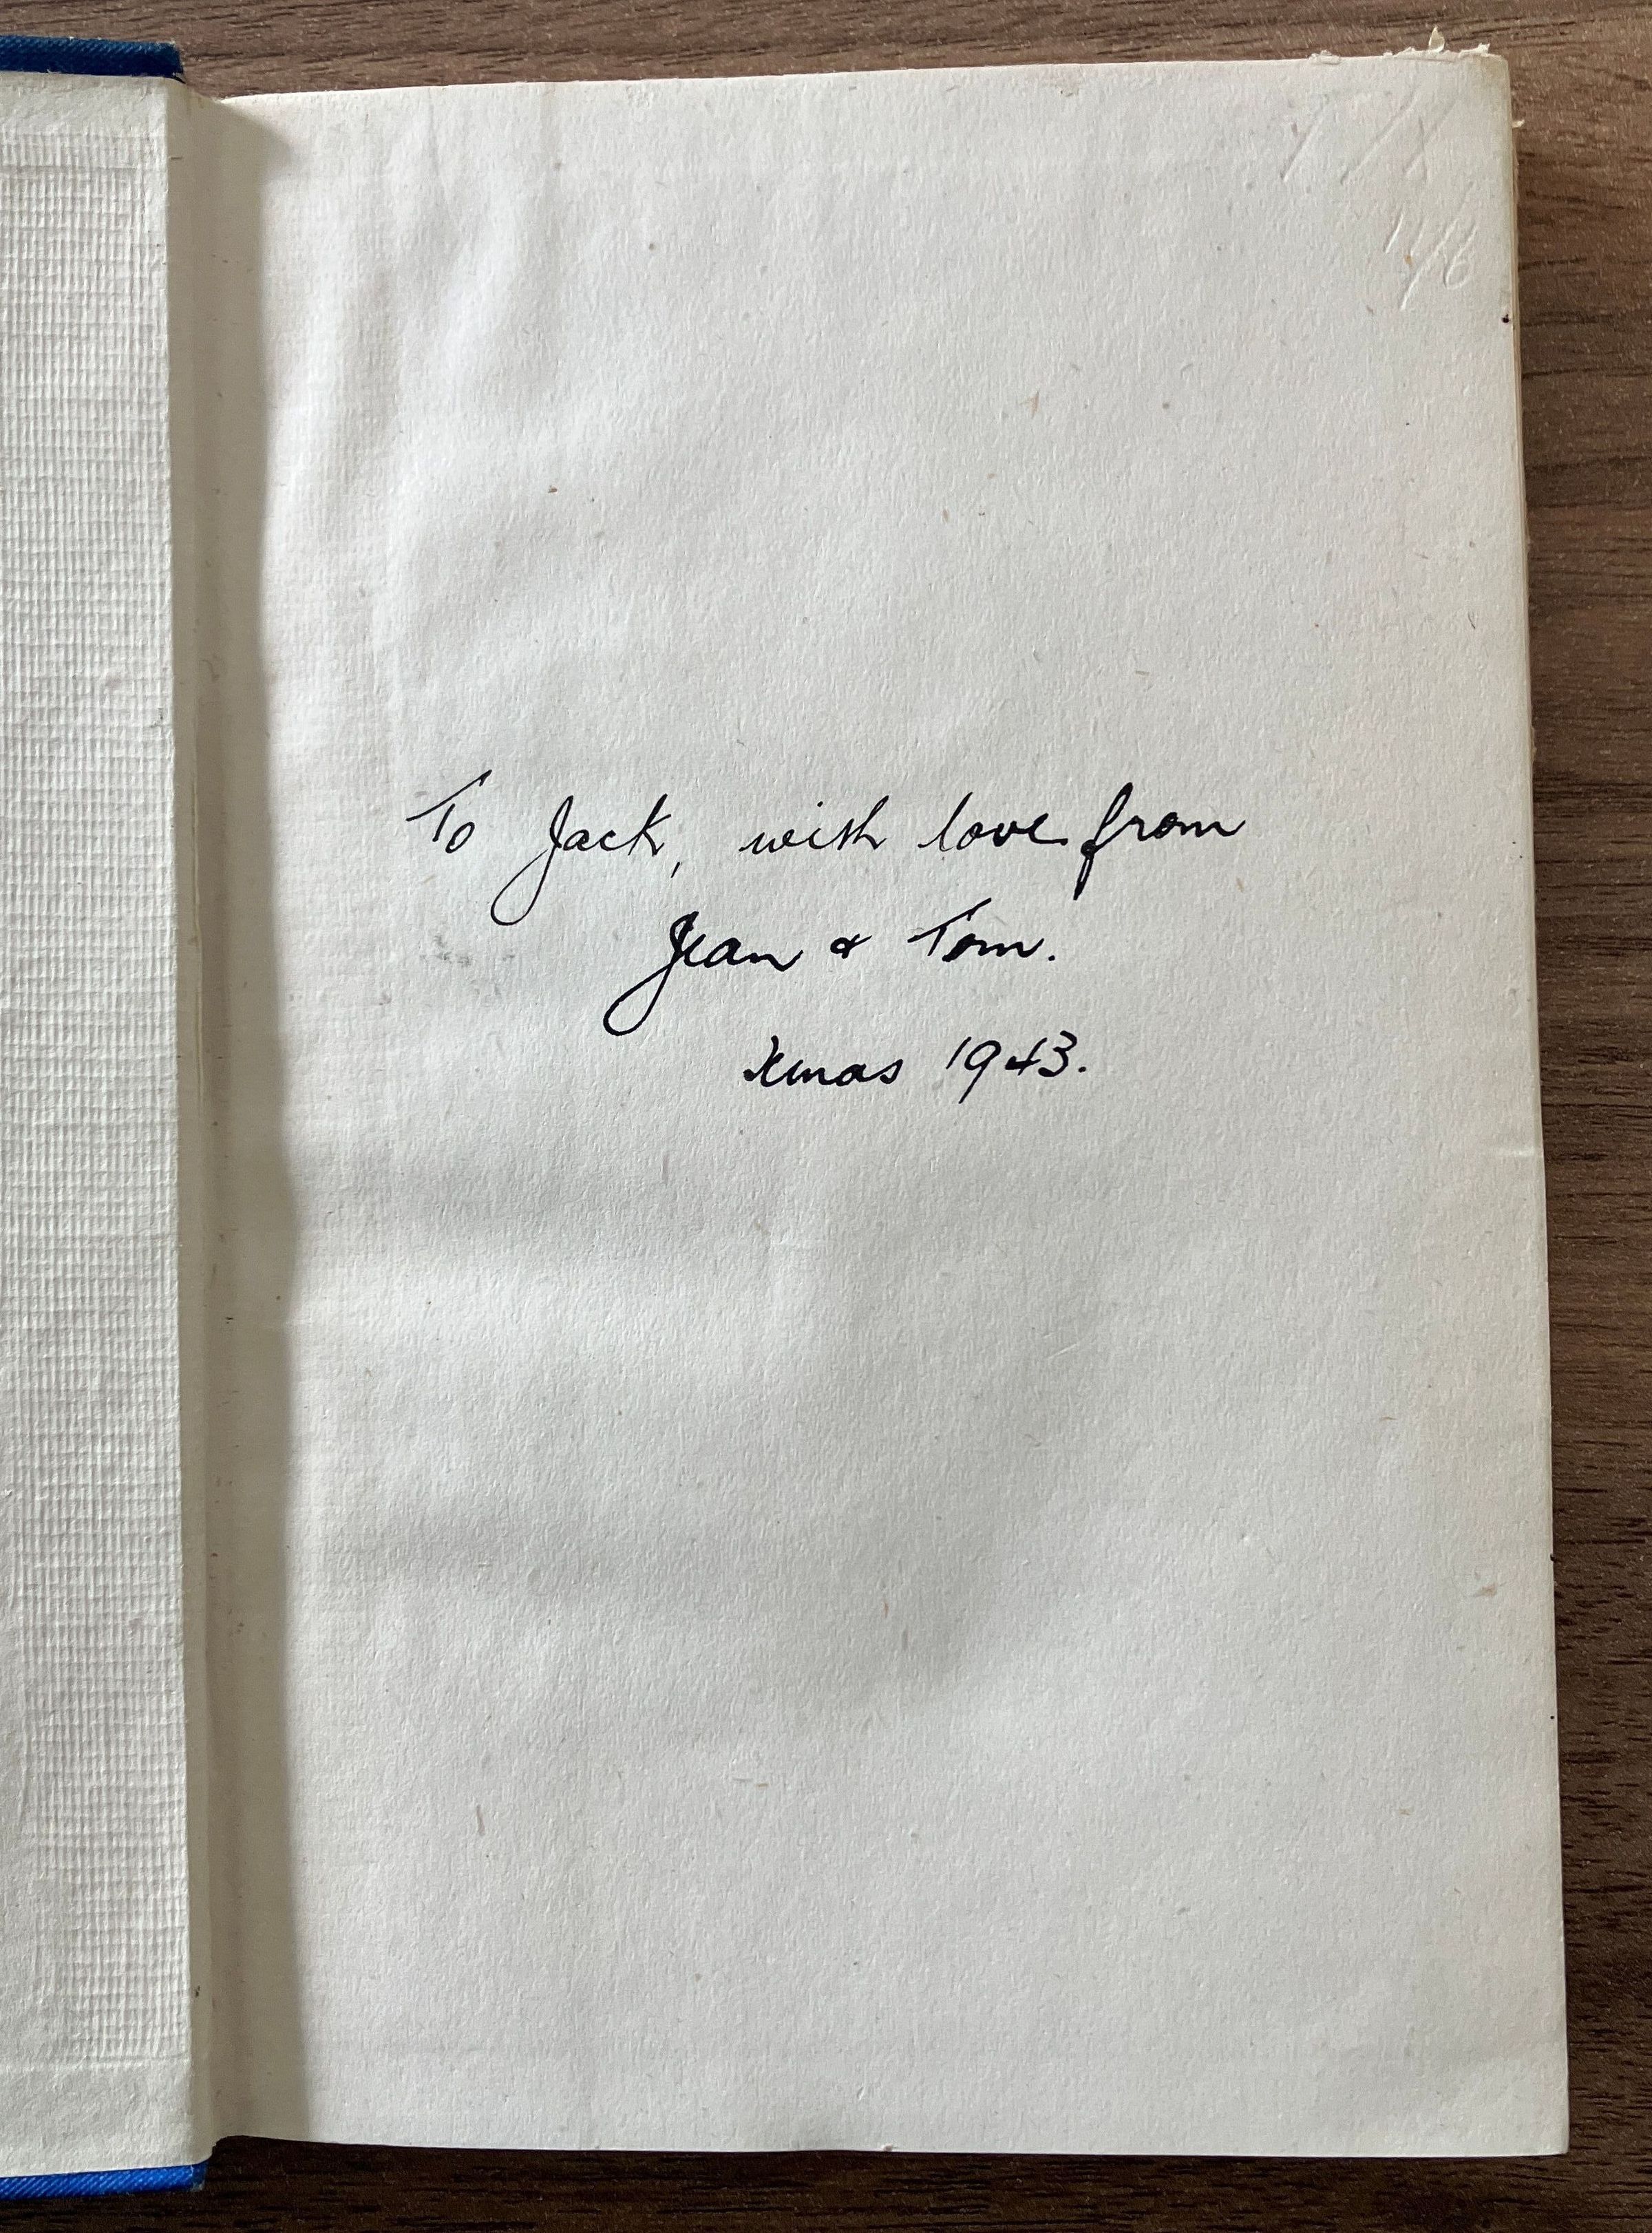 To Jack, with love from
Jean & Tom.
Xmas 1943.